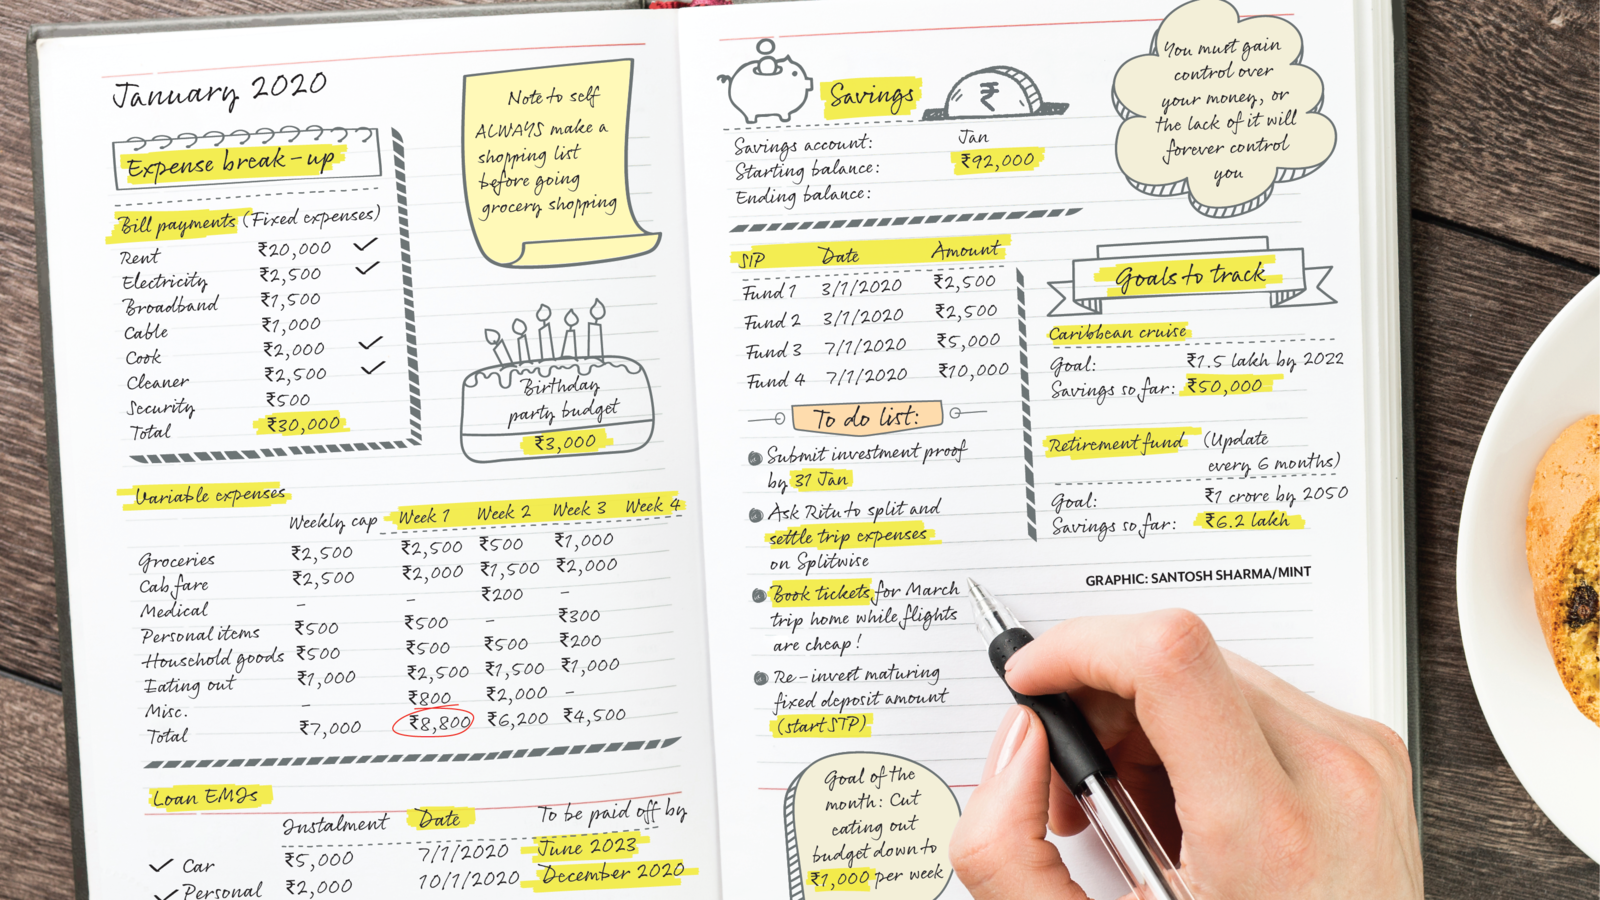 January 2020
Expense break-up
Bill payments (Fixed expenses)
Rent ₹20,000
Electricity ₹2,500
Broadband ₹1,500
Cable ₹1,000
Cook ₹2,000
Cleaner ₹2,500
Security ₹500
Total ₹30,000
Note to self
ALWAYS make a
shopping list
before going
grocery shopping
Birthday
party budget
₹3,000
Variable expenses
Weekly cap Week 1 Week 2 Week 3 Week 4
Groceries ₹2,500 ₹2,500 ₹500 ₹1,000
Cab fare ₹2,500 ₹2,000 ₹1,500 ₹2,000
Medical - - ₹200 -
Personal items ₹500 ₹500 - ₹300
Household goods ₹500 ₹500 ₹500 ₹200
Eating out ₹1,000 ₹2,500 ₹1,500 ₹1,000
Misc. - ₹800 ₹2,000 -
Total ₹7,000 ₹8,800 ₹6,200 ₹4,500
Loan EMIs
Instalment Date To be paid off by
Car ₹5,000 7/1/2020 June 2023
Personal ₹2,000 10/1/2020 December 2020
Savings
₹
Jan
Savings account:
Starting balance: ₹92,000
Ending balance:
You must gain
control over
your money, or
the lack of it will
forever control
you
SIP Date Amount
Fund 1 3/1/2020 ₹2,500
Fund 2 3/1/2020 ₹2,500
Fund 3 7/1/2020 ₹5,000
Fund 4 7/1/2020 ₹10,000
To do list:
Submit investment proof
by 31 Jan
Ask Ritu to split and
settle trip expenses
on Splitwise
Book tickets for March
trip home while flights
are cheap!
Re-invest maturing
fixed deposit amount
(start STP)
Goal of the
month: Cut
eating out
budget down to
₹1,000 per week
Goals to track
Caribbean cruise
Goal: ₹1.5 lakh by 2022
Savings so far: ₹50,000
Retirement fund (Update
every 6 months)
Goal: ₹1 crore by 2050
Savings so far: ₹6.2 lakh
GRAPHIC: SANTOSH SHARMA/MINT